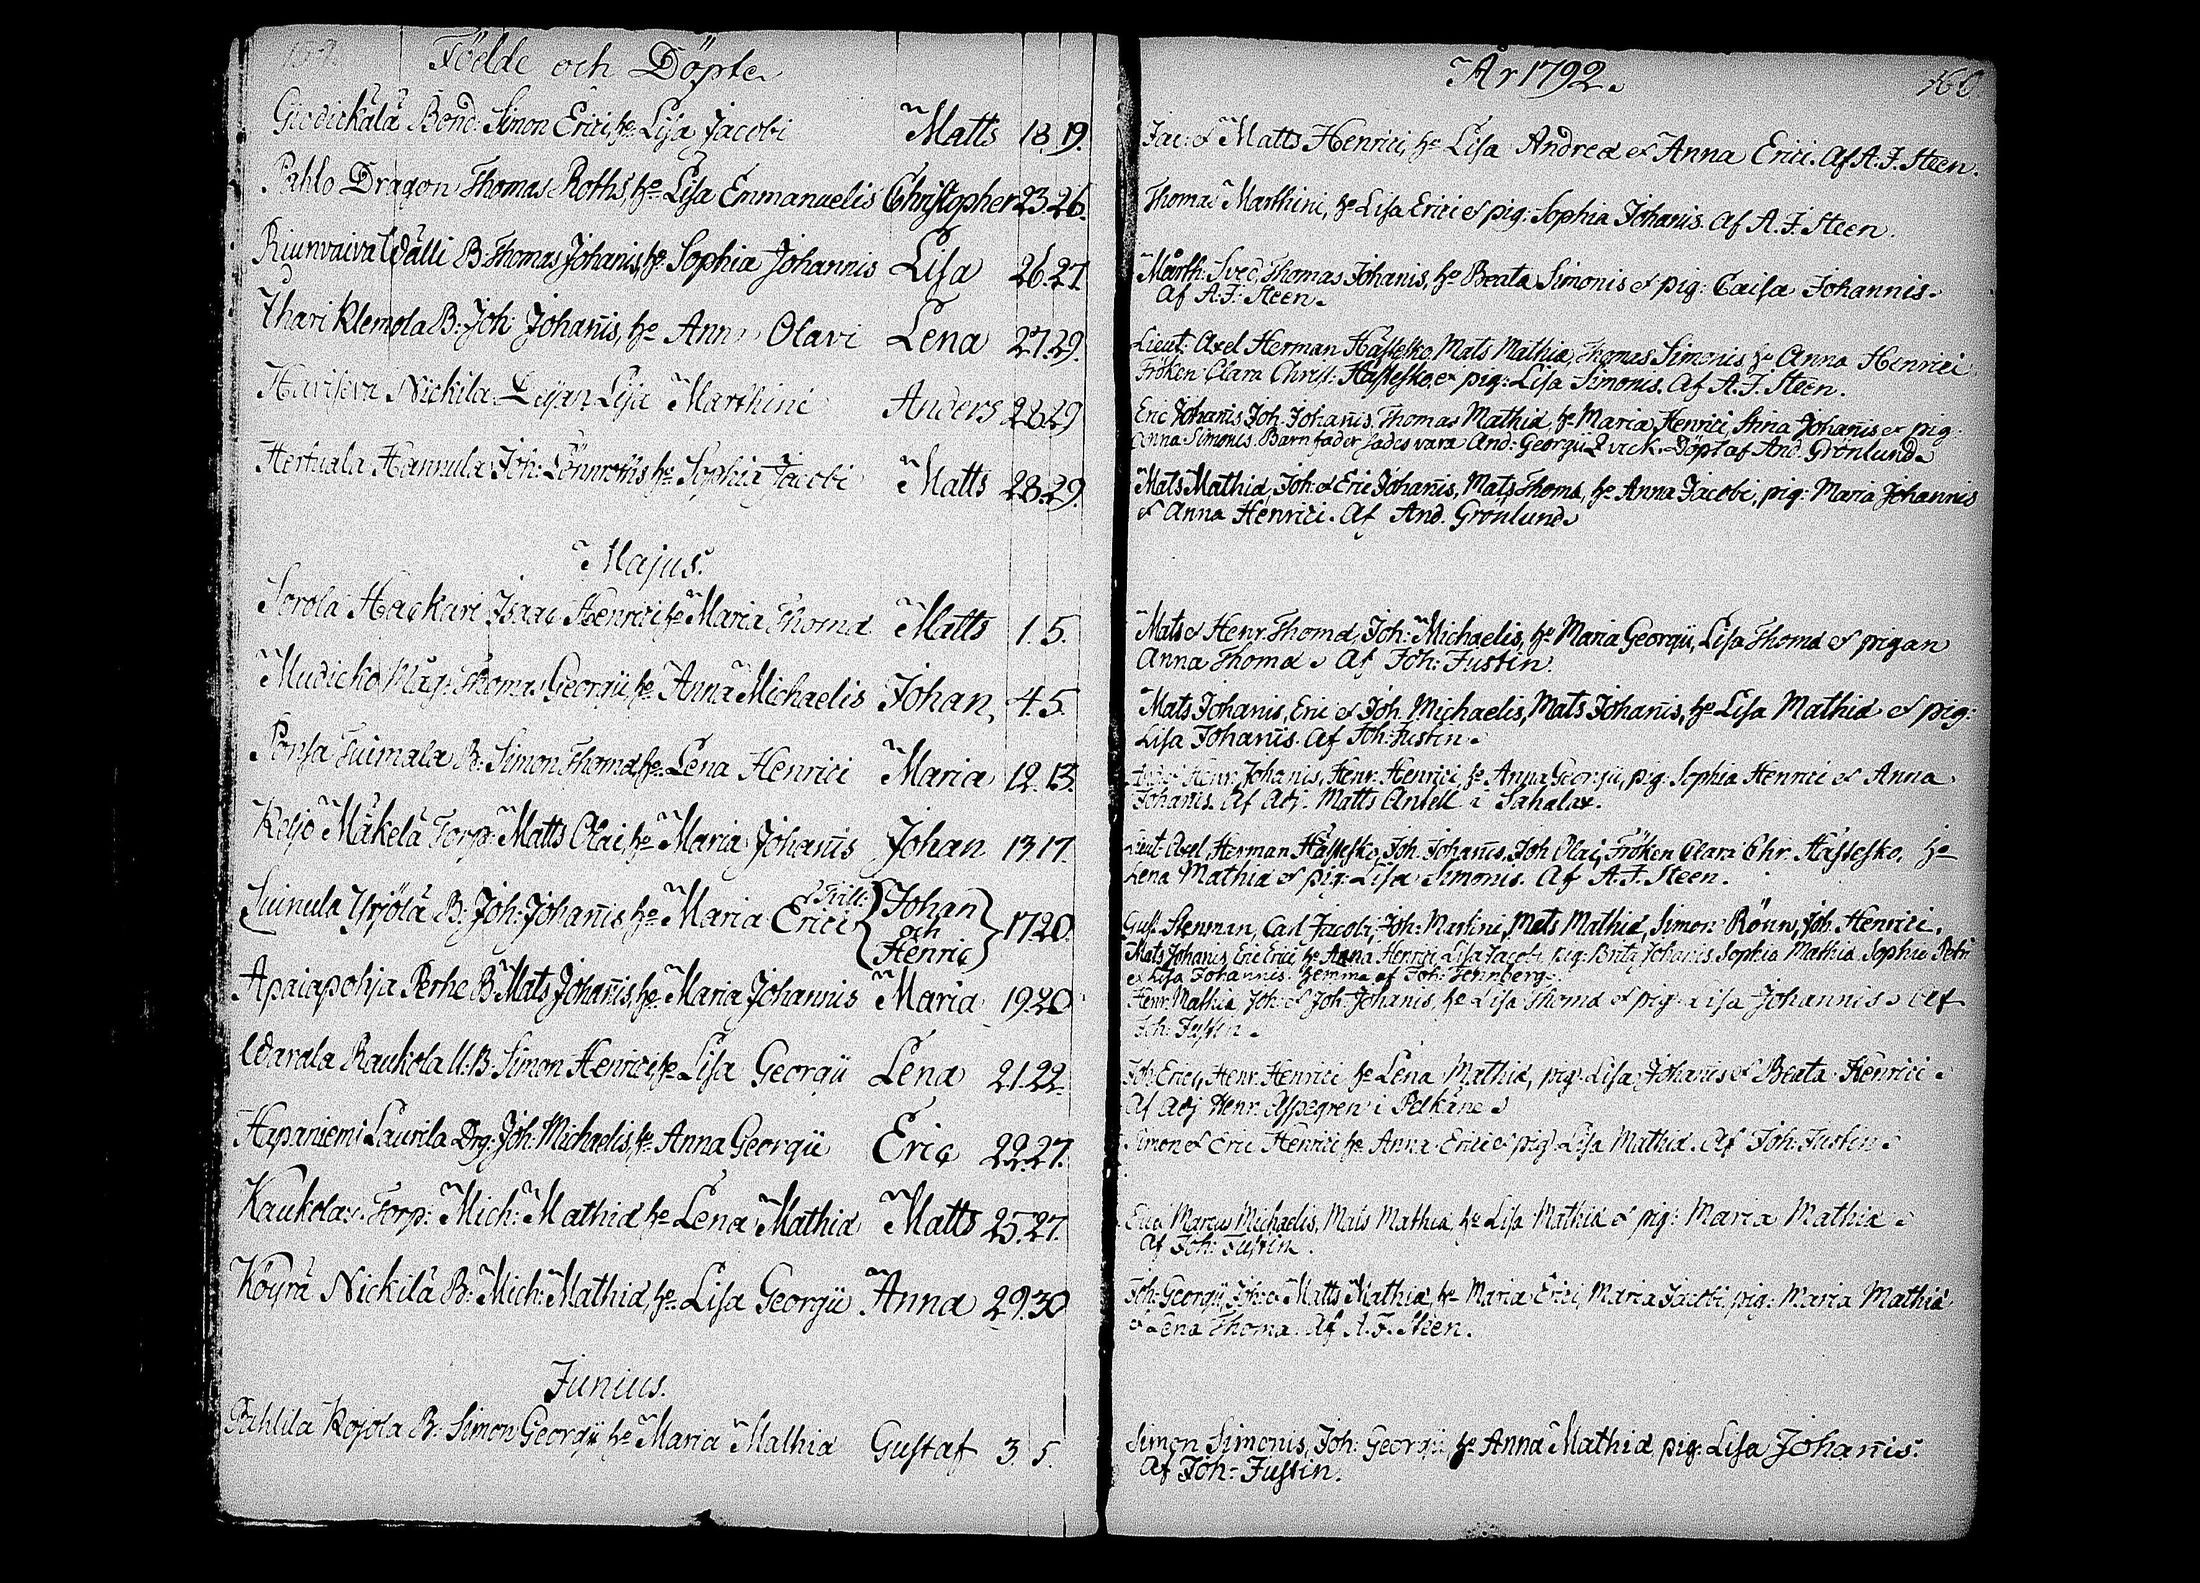 Födde och Döpte
Giödickälä Bond: Simon Erici, h: Lisa Jacobi Matts 18. 19.
Pahlo Dragon Thomas Roths, h: Lisa Emmanuelis Christopher 23. 26.
Riunvaiva Wälli B: Thomas Johanis, h: Sophia Johannis Lisa 26. 27.
Uhari Klemola B: Joh: Johañis, h: Anna Olavi Lena 27. 29.
Havisevа Nickila Pigan Lisa Marthini Anders 28. 29.
Hertuala Hannula Joh: Lönnroths h: Sophia Jacobi Matts 28. 29.
Majus.
Sorola Hackari Isaac Henrici h: Maria Thomæ Matts 1. 5.
Mudicko Måg: Thomas Georgii h: Anna Michaelis Johan, 4. 5.
Ponsa Tuimala B: Simon Thomæ, h: Lena Henrici Maria 12. 13.
Keljo Mäkelä Torp: Matts Olai, h: Maria Johañis Johan 13. 17.
Suinula Yrjölä B: Joh: Johañis h: Maria Erici Tvill: Johan
och
Henric 17. 20.
Apaiapohja Perhe B: Mats Johañis, h: Maria Johannis Maria 19. 20.
Warala Raukola U. B: Simon Henrici, h: Lisa Georgii Lena 21. 22.
Hapaniemi Laurila Drg: Joh: Michaelis, h: Anna Georgii Eric 22. 27.
Kaukola Torp: Mich: Mathiæ h: Lena Mathiæ Matts 25. 27.
Köyrä Nickilä B: Mich: Mathiæ, h: Lisa Georgii Anna 29. 30.
Junius.
Pahlila Rojola B: Simon Georgii h: Maria Mathiæ Gustaf 3. 5.
År 1792.
Jac: & Matts Henrici, h: Lisa Andreæ & Anna Erici. Af A. F. Steen.
Thomas Marthini, h: Lisa Erici & pig: Sophia Johanis. Af A. F. Steen.
Marth: Sved, Thomas Johanis, h: Beata Simonis & pig: Caisa Johannis.
Af A. F. Steen.
Lieut: Axel Herman Hästesko, Mats Mathiæ, Thomas Simonis h: Anna Henrici
Fröken Clara Christ: Hästesko, & pig: Lisa Simonis. Af A. F. Steen.
Eric Johañis, Joh: Johañis, Thomas Mathiæ, h: Maria Henrici, Stina Johañis & pig:
Anna Simonis. Barnfader sades vara And: Georgii Qvick. Döpt af And: Grönlund.
Mats Mathiæ, Joh: & Eric Johañis, Mats Thomæ, h: Anna Jacobi, pig: Maria Johannis
& Anna Henrici. Af And. Grönlund.
Mats & Henr. Thomæ, Joh: Michaelis, h: Maria Georgii, Lisa Thomæ & pigan
Anna Thomæ. Af Joh: Justin.
Mats Johanis, Eric & Joh: Michaelis, Mats Johañis, h: Lisa Mathiæ & pig:
Lisa Johañis. Af Joh: Justin.
Henr: Johanis, Henr. Henrici, h: Anna Georgii, pig: Sophia Henrici & Anna
Johañis. Af Adj: Matts Antell i Sahalax.
Lieut. Axel Herman Hästesko, Joh: Johañis, Joh: Olai, Fröken Clara Chr. Hästesko, h:
Lena Mathiæ & pig: Lisa Simonis. Af A. F. Steen.
Gust: Stenman, Carl Jacobi, Joh: Martini, Mats Mathiæ, Simon Rönn, Joh. Henrici,
Mats Johanis, Eric Erici, h: Anna Henrici, Lisa Jacobi, pig: Brita Johanis, Sophia Mathiæ, Sophia Petri
& Lisa Johannis. Hemma af Joh: Fernberg.
Henr: Mathiæ, Joh: & Joh: Johanis, h: Lisa Thomæ & pig: Lisa Johannis. Af
Joh: Justin.
Joh: Erici, Henr. Henrici h: Lena Mathiæ, pig: Lisa Johanis & Beata Henrici.
Af Adj Henr. Aspegren i Pelkäne.
Simon & Eric Henrici h: Anna Erici & pig: Lisa Mathiæ. Af Joh: Justin.
Marcus Michaelis, Mats Mathiæ, h: Lisa Mathiæ & pig: Maria Mathiæ.
Af Joh: Justin.
Joh: Georgii, Joh: & Matts Mathiæ, h: Maria Erici, Maria Jacobi, pig: Maria Mathiæ
& Lena Thomæ. Af A. F. Steen.
Simon Simonis, Joh: Georgii, h: Anna Mathiæ pig: Lisa Johañis.
Af Joh: Justin.